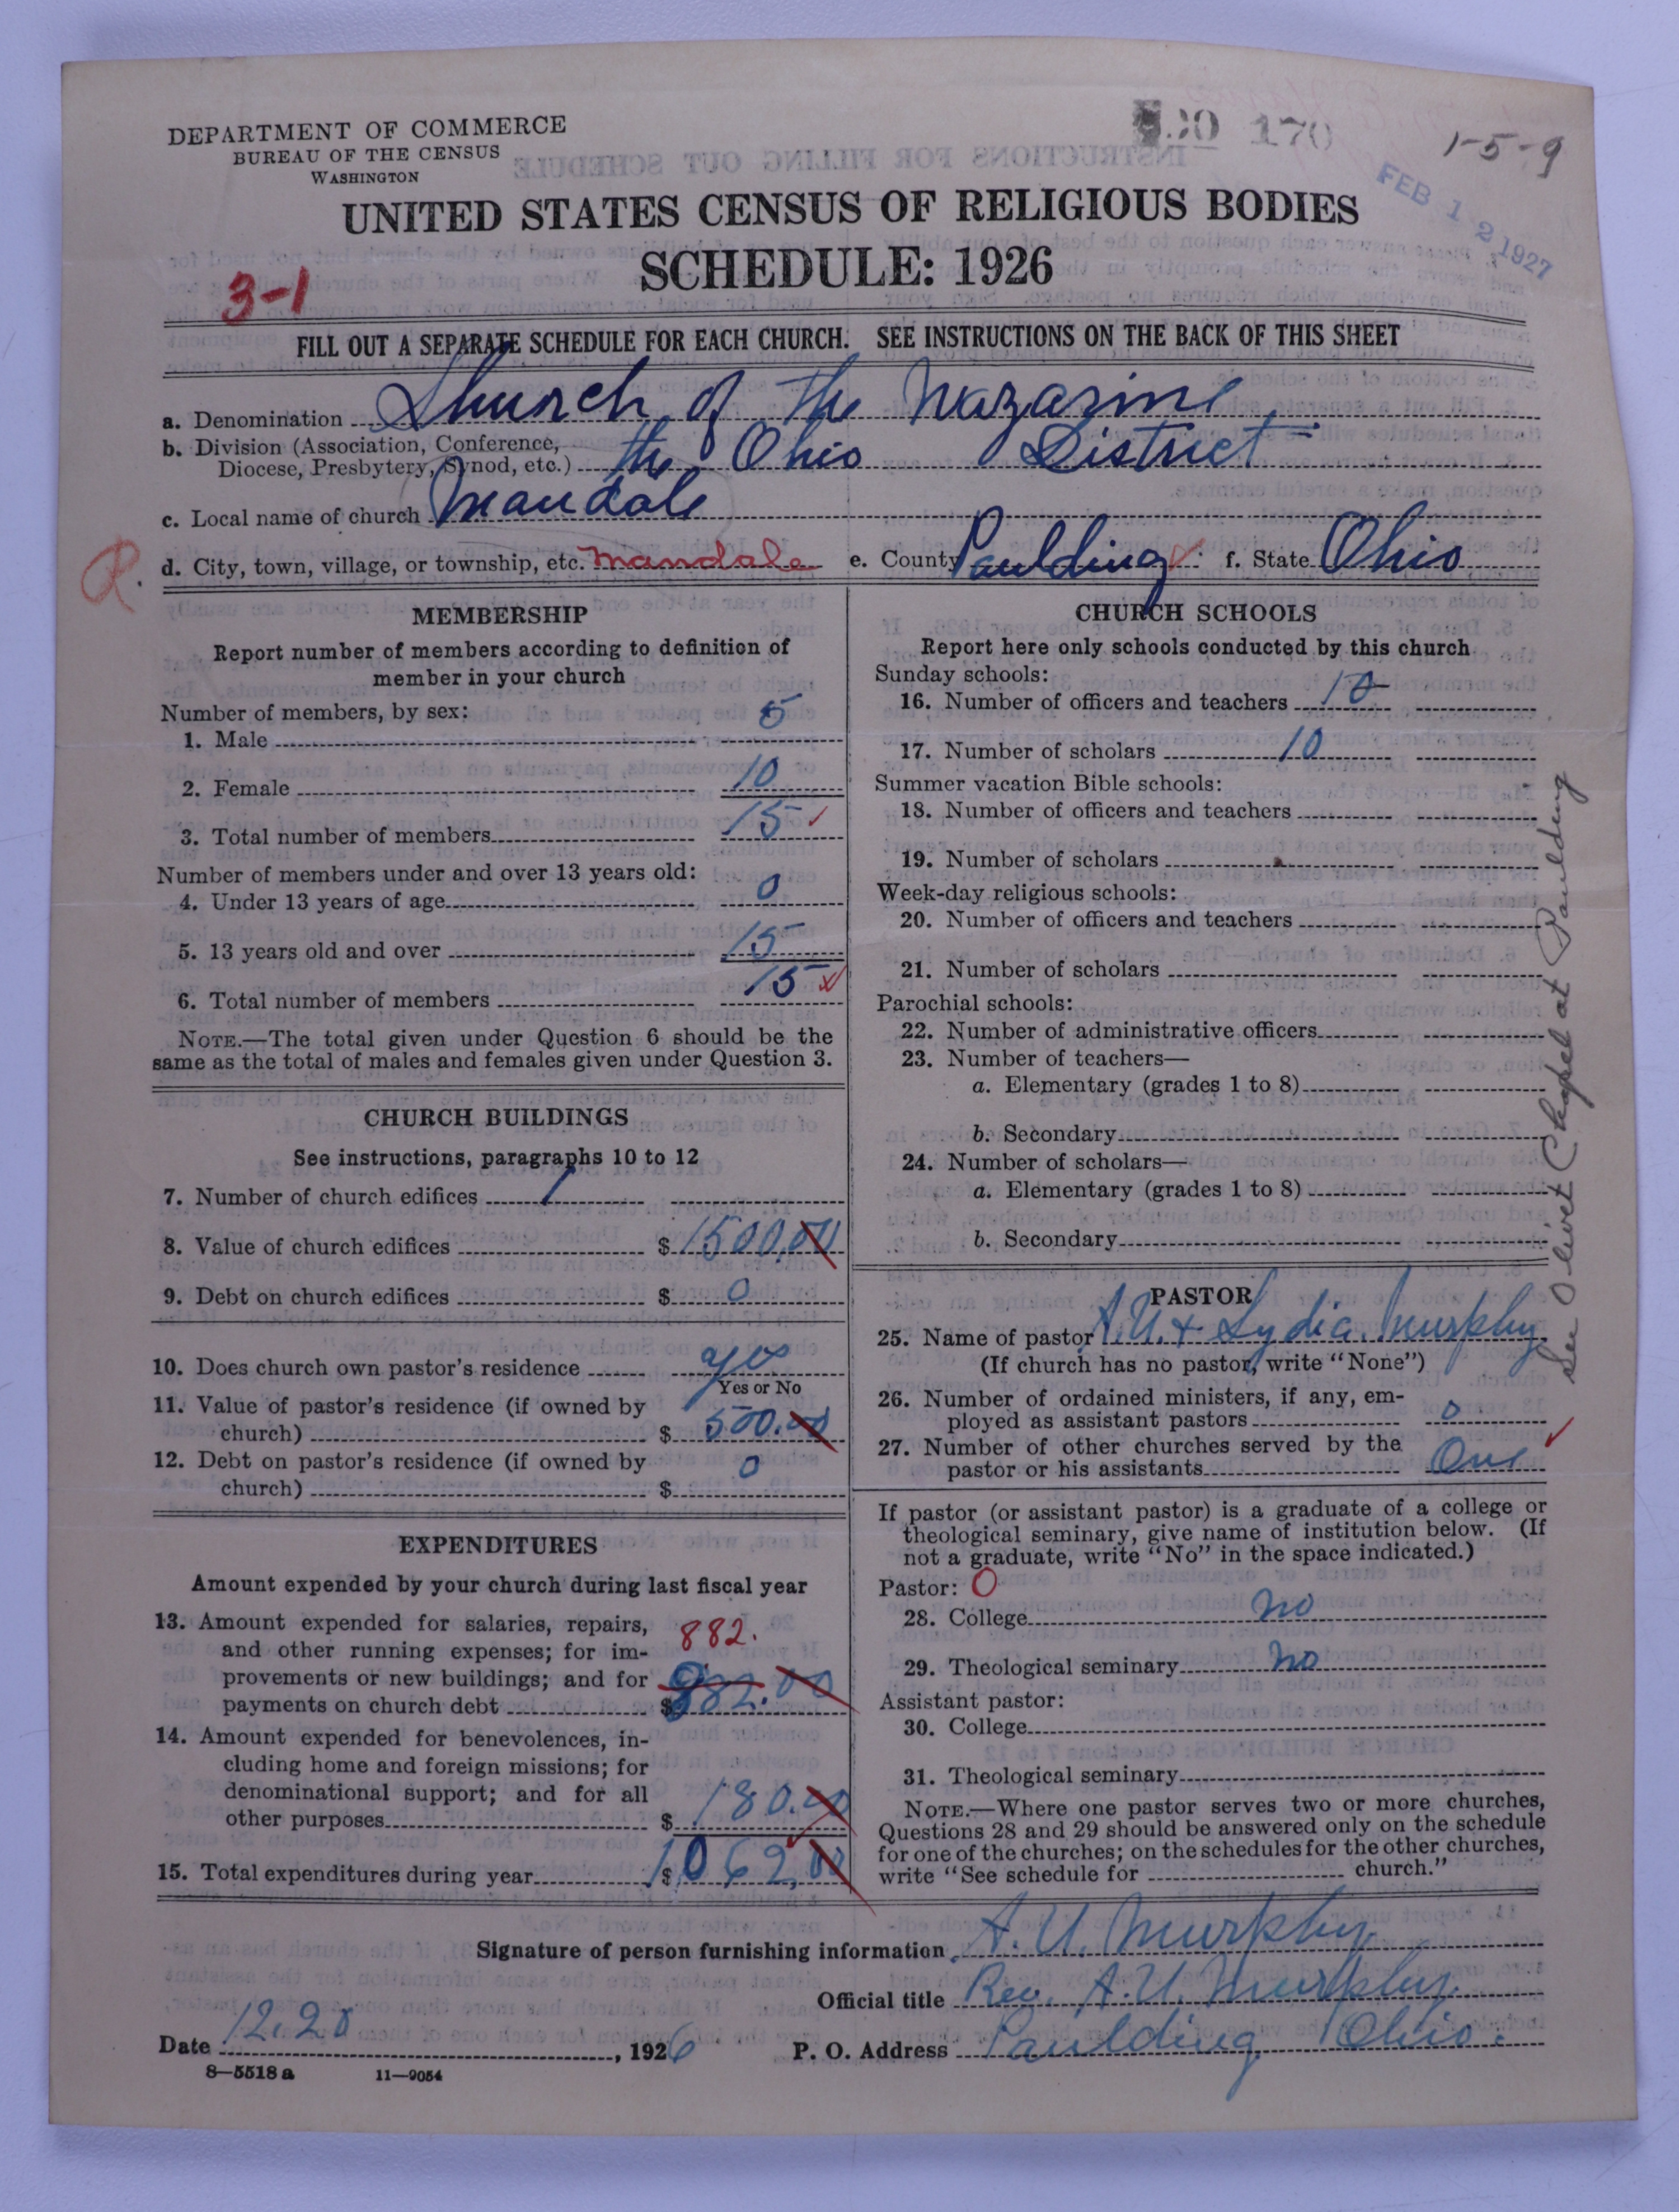 DEPARTMENT OF COMMERCE
BUREAU OF THE CENSUS
WASHINGTON
170
1-5-9
FEB 12 1927
UNITED STATES CENSUS OF RELIGIOUS BODIES
SCHEDULE: 1926
3-1
FILL OUT A SEPARATE SCHEDULE FOR EACH CHURCH. SEE INSTRUCTIONS ON THE BACK OF THIS SHEET
a. Denomination Church of the Nazarine
b. Division (Association, Conference,
Diocese, Presbytery, Synod, etc.) the Ohio District
c. Local name of church Mandale
R. d. City, town, village, or township, etc. Mandale e. County Paulding f. State Ohio
MEMBERSHIP
Report number of members according to definition of
member in your church
Number of members, by sex:
1. Male 5
2. Female 10
3. Total number of members 15
Number of members under and over 13 years old:
4. Under 13 years of age 0
5. 13 years old and over 15
6. Total number of members 15
NOTE.—The total given under Question 6 should be the
same as the total of males and females given under Question 3.
CHURCH BUILDINGS
See instructions, paragraphs 10 to 12
7. Number of church edifices 1
8. Value of church edifices $ 1500,00
9. Debt on church edifices $ 0
10. Does church own pastor's residence yes
Yes or No
11. Value of pastor's residence (if owned by
church) $ 500.00
12. Debt on pastor's residence (if owned by
church) $ 0
EXPENDITURES
Amount expended by your church during last fiscal year
13. Amount expended for salaries, repairs,
and other running expenses; for im-
provements or new buildings; and for
payments on church debt $ 882.00
882.
14. Amount expended for benevolences, in-
cluding home and foreign missions; for
denominational support; and for all
other purposes $ 180.00
15. Total expenditures during year $ 1062,00
CHURCH SCHOOLS
Report here only schools conducted by this church
Sunday schools:
16. Number of officers and teachers 10
17. Number of scholars 10
Summer vacation Bible schools:
18. Number of officers and teachers
19. Number of scholars
Week-day religious schools:
20. Number of officers and teachers
21. Number of scholars
Parochial schools:
22. Number of administrative officers
23. Number of teachers—
a. Elementary (grades 1 to 8)
b. Secondary
24. Number of scholars—
a. Elementary (grades 1 to 8)
b. Secondary
PASTOR
25. Name of pastor A.U. + Lydia Murphy
(If church has no pastor, write "None")
26. Number of ordained ministers, if any, em-
ployed as assistant pastors 0
27. Number of other churches served by the
pastor or his assistants One
If pastor (or assistant pastor) is a graduate of a college or
theological seminary, give name of institution below. (If
not a graduate, write "No" in the space indicated.)
Pastor: O
28. College No
29. Theological seminary No
Assistant pastor:
30. College
31. Theological seminary
NOTE.—Where one pastor serves two or more churches,
Questions 28 and 29 should be answered only on the schedule
for one of the churches; on the schedules for the other churches,
write "See schedule for church."
See Olivet Chapel at Paulding
Signature of person furnishing information A. U. Murphy
Official title Rev. A.U. Murphy
Date 12.28, 1926 P. O. Address Paulding Ohio.
8—5518 a 11—9054